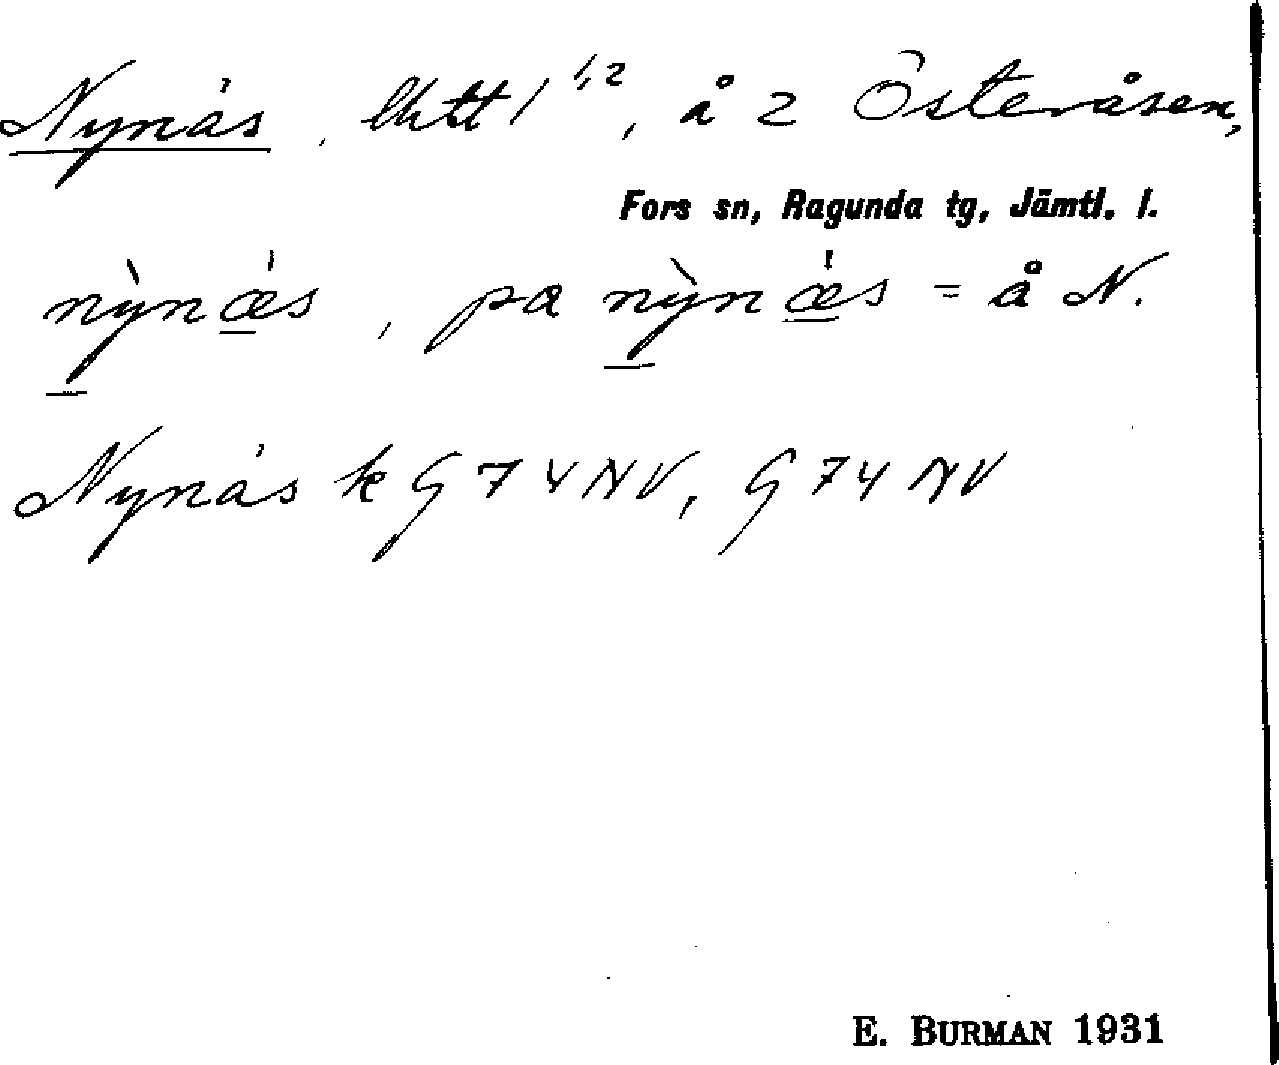 Nynäs, lhtt 1 1,2, å 2 Österåsen,
Fors sn, Ragunda tg, Jämtl. l.
nỳnæ̀s, pa nỳnæ̀s = å N.
Nynäs k G 74 NV, G 74 NV
E. BURMAN 1931